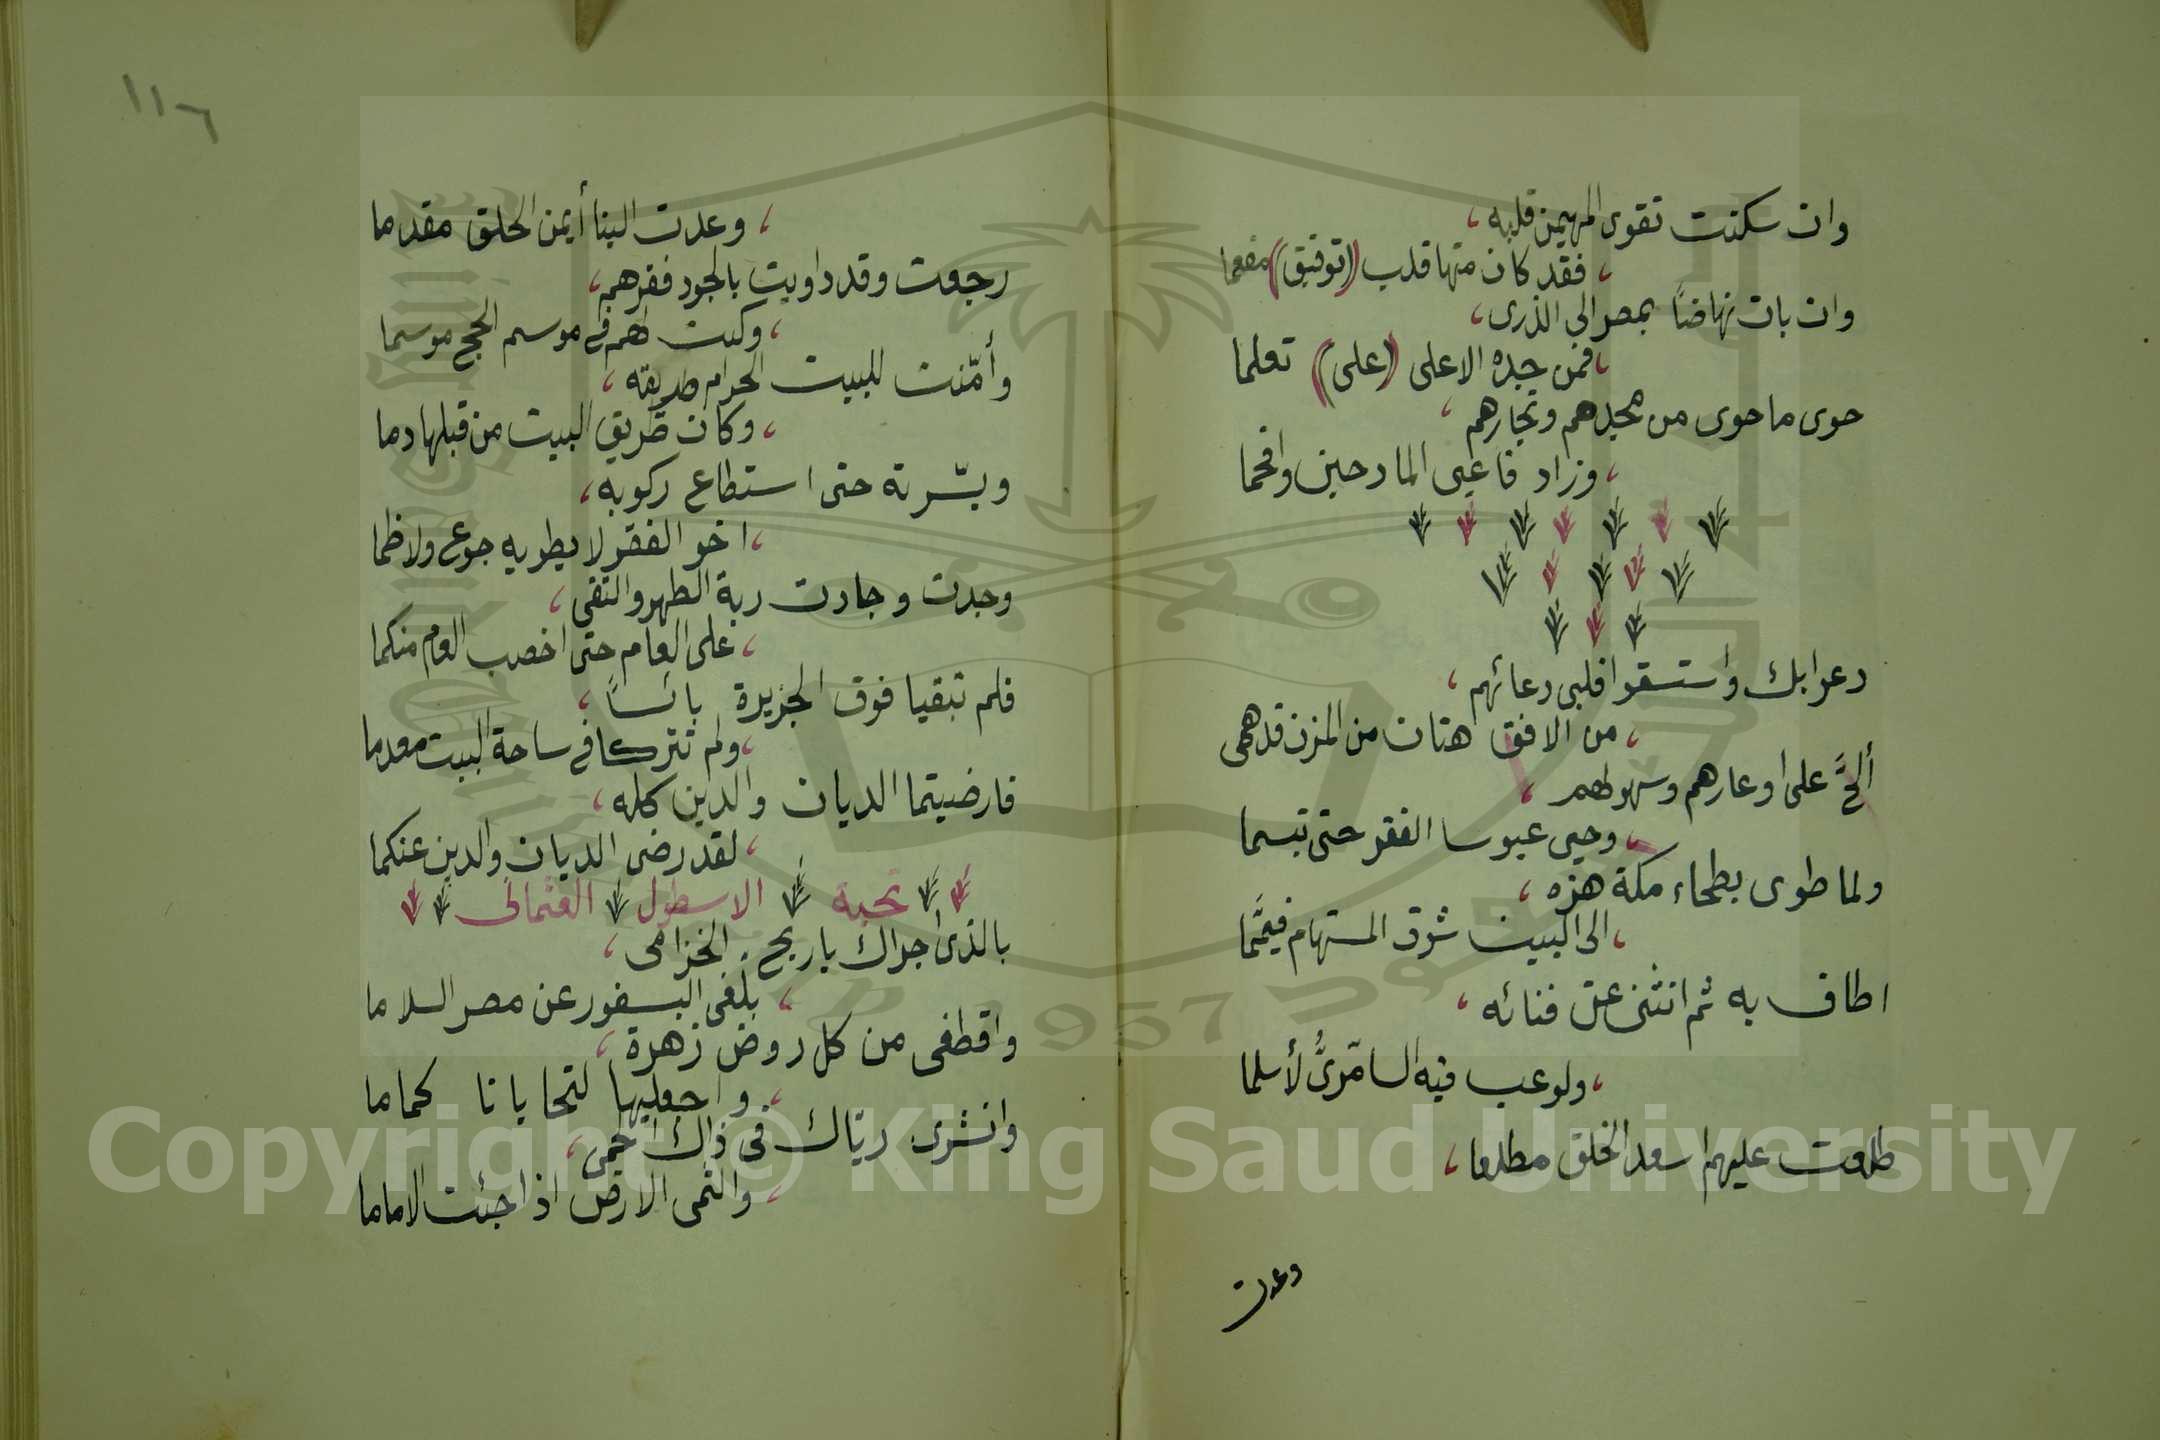 وان سكنت تقوى المهيمن قلبه،
، فقد كان منها قلب (توفيق) مفعما
وان بات نهاضًا بمصر الى الذرى،
، فمن جده الاعلى (على) تعلما
حوى ما حوى من مجدهم ونجارهم،
، وزاد فاعيى المادحين وافحما
دعوا بك واستسقوا فلبى دعائهم،
، من الافق هتان من المزن قد همى
ألحَّ على اوعارهم وسهولهم،
، وحيى عبوسا الفقر حتى تبسما
ولما طوى بطحاء مكة هزه،
، الى البيت شوق المستهام فيمَّما
اطاف به ثم انثنى عن فنائه،
، ولو عب فيه السامّرىُّ لأسلما
طلعت عليهم اسعد الخلق مطلعا،
وعدت
١١٦
، وعدت الينا أيمن الخلق مقدما
رجعت وقد داويت بالجود فقرهم،
، وكنت لهم فى موسم الحج موسما
وأمّنت للبيت الحرام طريقه،
، وكان طريق البيت من قبلها دما
ويسّرته حتى استطاع ركوبه،
، اخو الفقر لا يطويه جوع ولا ظما
وجدت وجادت ربة الطهر والتقى،
، على العام حتى اخصب العام منكما
فلم تبقيا فوق الجزيرة بائسًا،
، ولم تتركا فى ساحة البيت معدما
فارضيتما الديان والدين كله،
، لقد رضى الديان والدين عنكما
تحية الاسطول العثمانى
بالذى اجراك يا ريح الخزامى،
، بلّغى البسفور عن مصر السلاما
واقطفى من كل روض زهرة،
، واجعليها لتحايانا كماما
وانشرى ريّاك فى ذاك الحمى،
، والثمى الارض اذا جئت الاماما
Copyright © King Saud University
1957